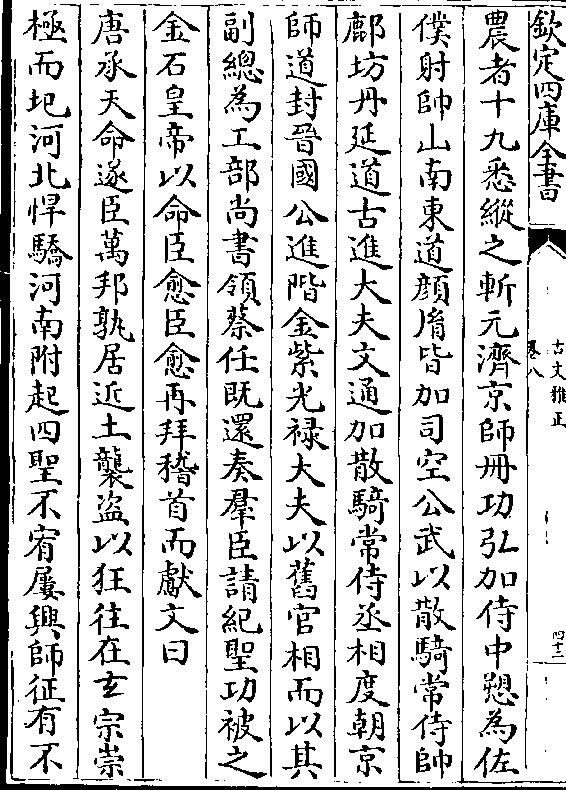 欽定四庫全書
古文雅正
卷八
四十二
農者十九悉縱之斬元濟京師冊功弘加侍中愬為佐
僕射帥山南東道顔𦙍皆加司空公武以散騎常侍帥
鄜坊丹延道古進大夫文通加散騎常侍丞相度朝京
師道封晉國公進階金紫光禄大夫以舊官相而以其
副總為工部尚書領蔡任既還奏羣臣請紀聖功被之
金石皇帝以命臣愈臣愈再拜稽首而獻文曰
唐承天命遂臣萬邦孰居近土襲盗以狂往在玄宗崇
極而圮河北悍驕河南附起四聖不宥屢興師征有不